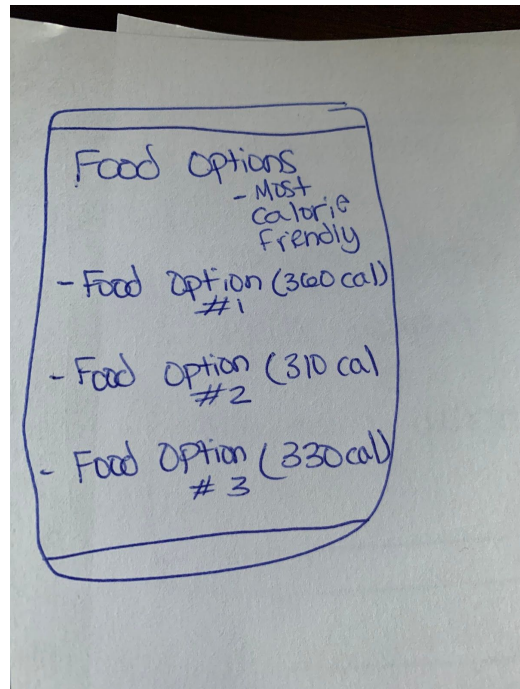 Food Options
- Most
Calorie
Friendly
- Food Option (360 cal)
#1
- Food Option (310 cal
#2
- Food Option (330 cal)
# 3